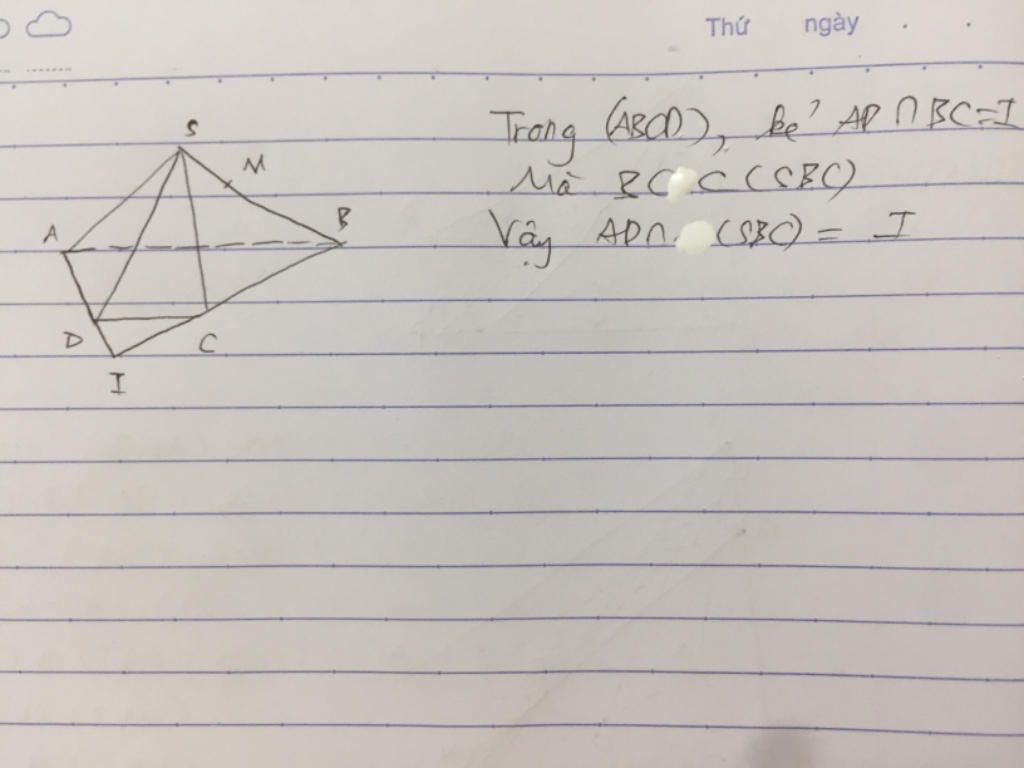 Thứ ngày
S
M
A
B
D
C
I
Trong (ABCD), kẻ AD ∩ BC = I
Mà BC ⊂ (SBC)
Vậy AD ∩ (SBC) = I